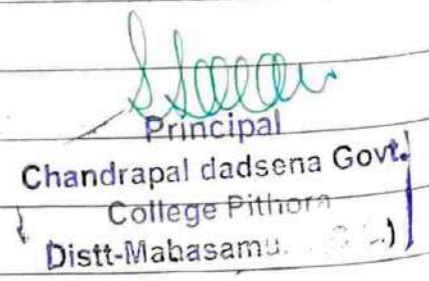 Principal
Chandrapal dadsena Govt.
College Pithora
Distt-Mahasamu